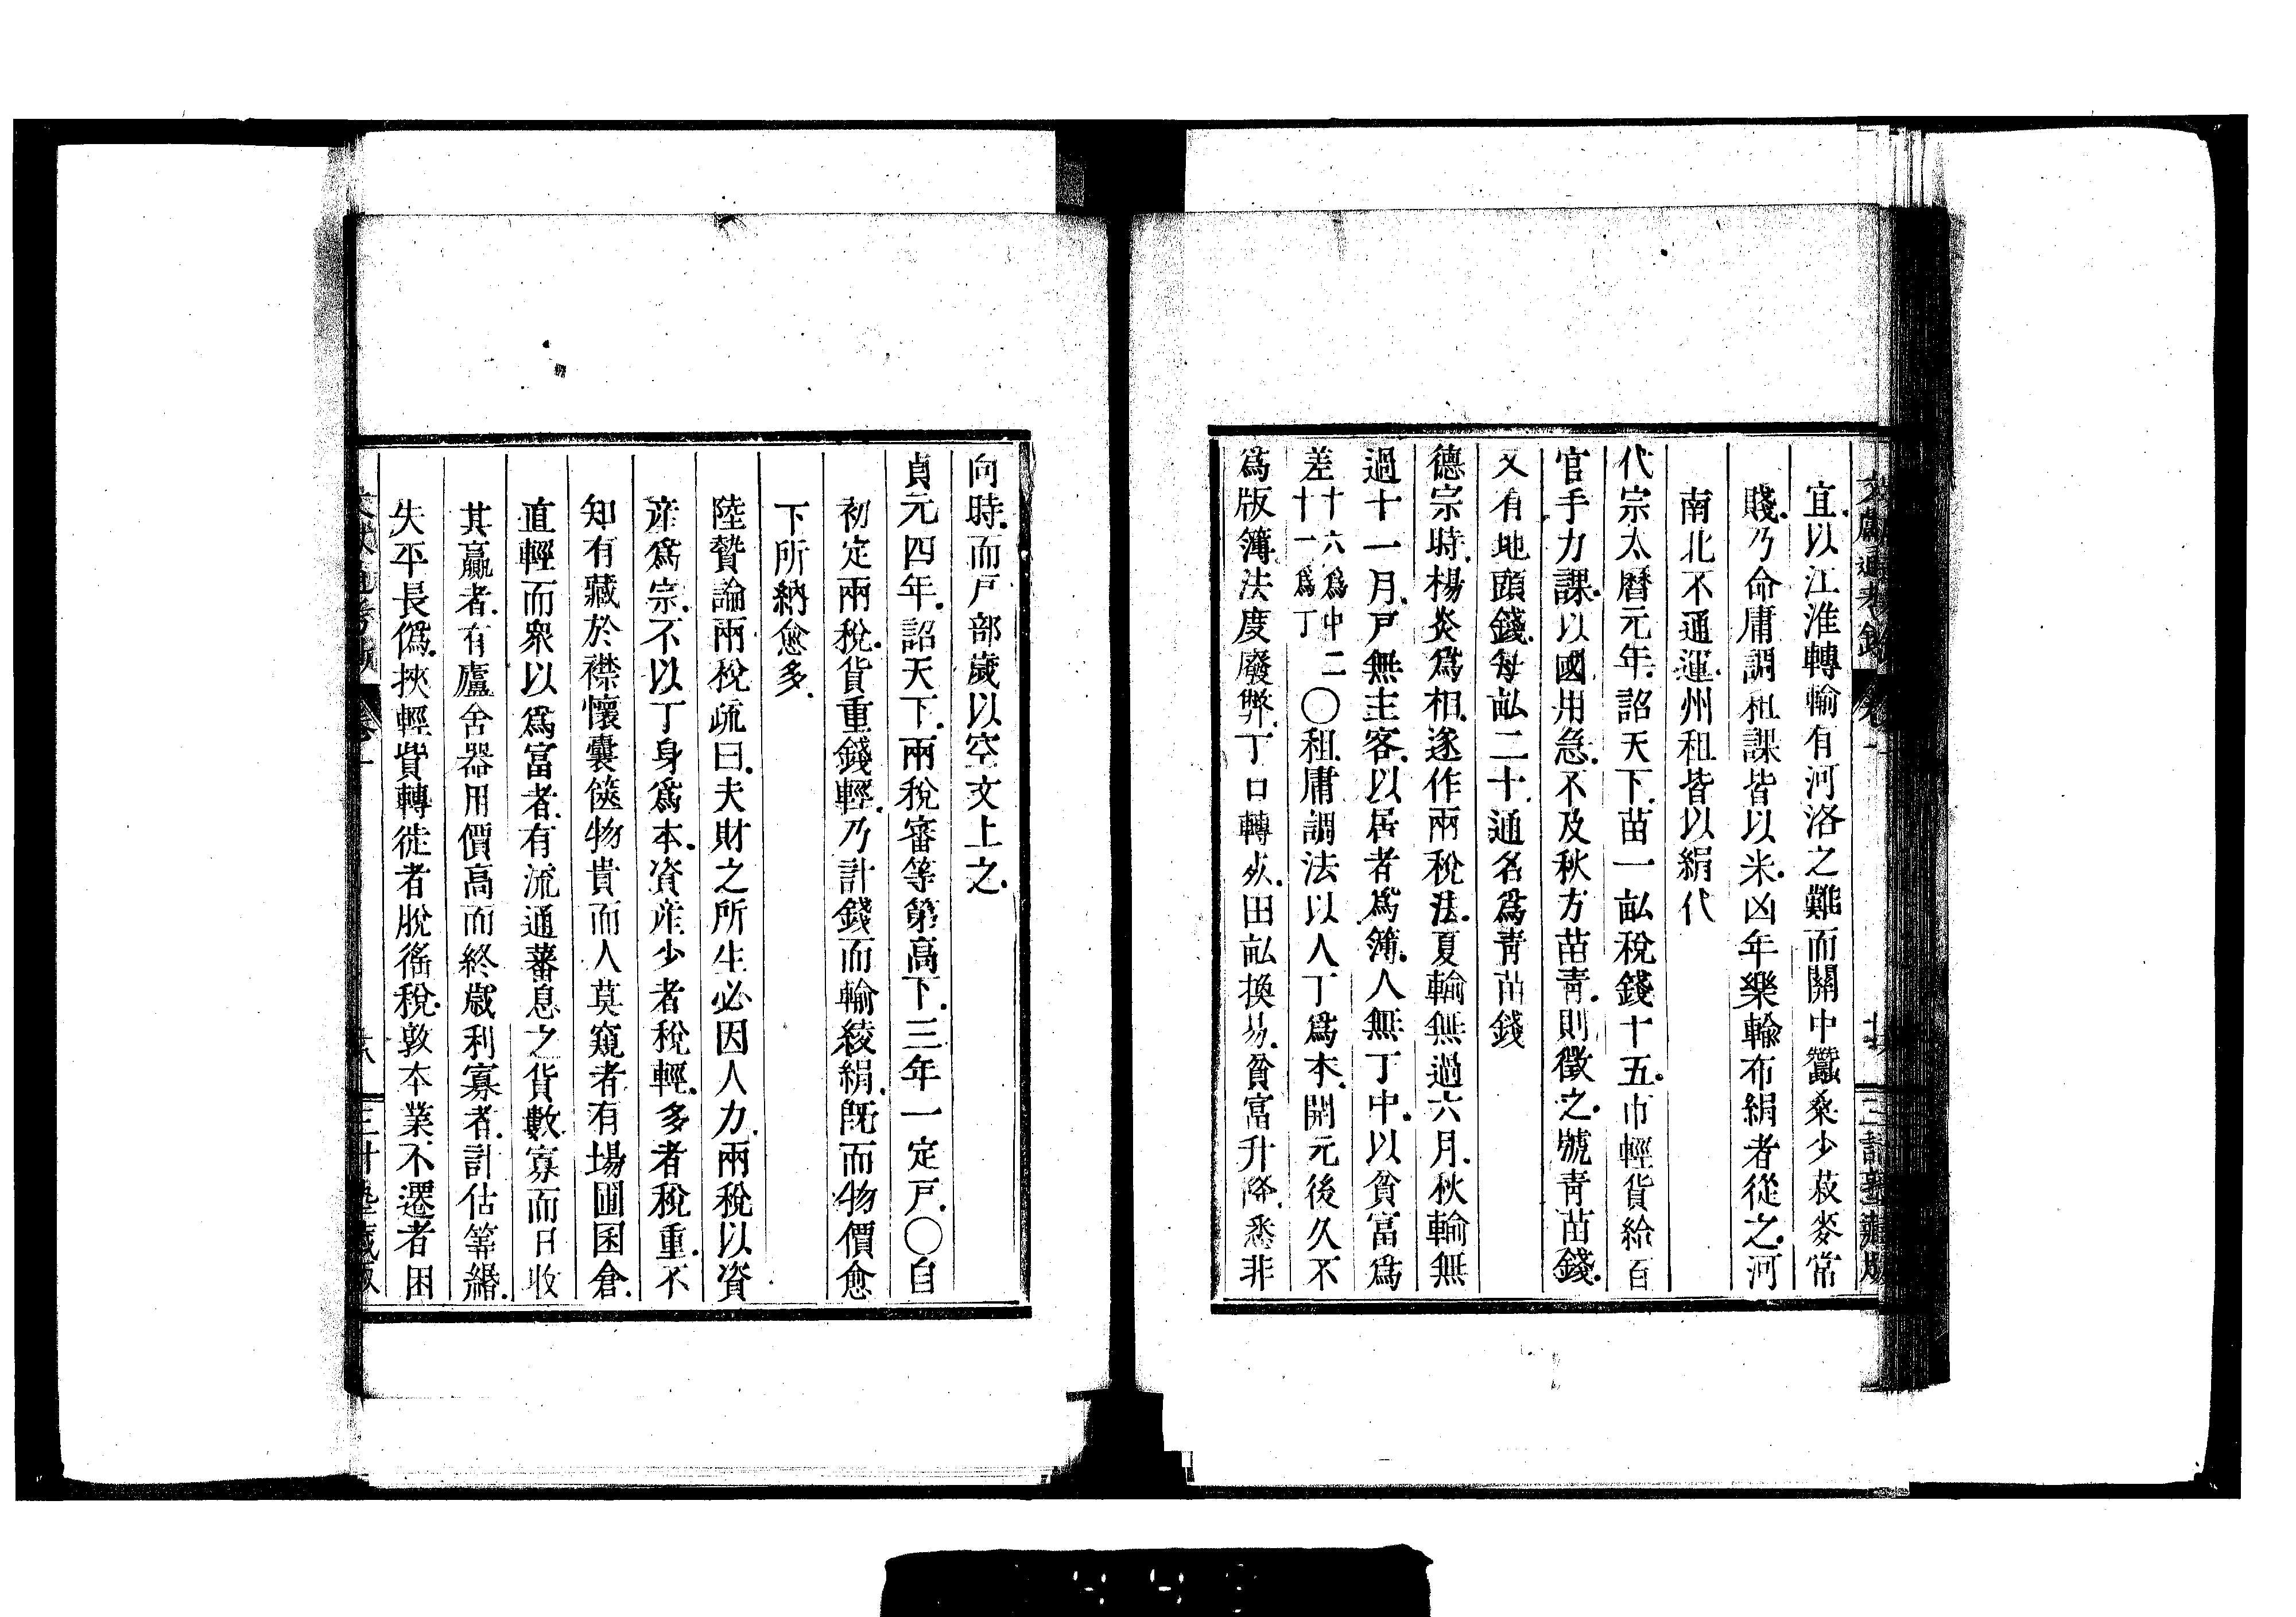 宜以江淮轉輸有河洛之難而關中蠶桑少菽麥常
賤乃命庸調租課皆以米凶年樂輸布絹者從之河
南北不通運州租皆以絹代
代宗太曆元年詔天下苗一畝稅錢十五市輕貨給百
官手力課以國用急不及秋方苗青則徵之號青苗錢
又有地頭錢每畝二十通名爲青苗錢
德宗時楊炎爲相遂作兩稅法夏輸無過六月秋輸無
過十一月戸無主客以居者爲簿人無丁中以貧富爲
差十六爲中二十一爲丁〇租庸調法以人丁爲本開元後久不
爲版簿法度廢弊丁口轉死田畝換易貧富升降悉非
向時而戸部歲以空文上之
貞元四年詔天下兩稅審等第高下三年一定戸〇自
初定兩稅貨重錢輕乃計錢而輸綾絹旣而物價愈
下所納愈多
陸贄論兩稅疏曰夫財之所生必因人力兩稅以資
產爲宗不以丁身爲本資產少者稅輕多者稅重不
知有藏於襟懷囊篋物貴而人莫窺者有場圃囷倉
直輕而衆以爲富者有流通蕃息之貨數寡而日收
其贏者有廬舍器用價高而終歲利寡者計估筭緡
失平長僞挾輕費轉徙者脫徭稅敦本業不遷者困